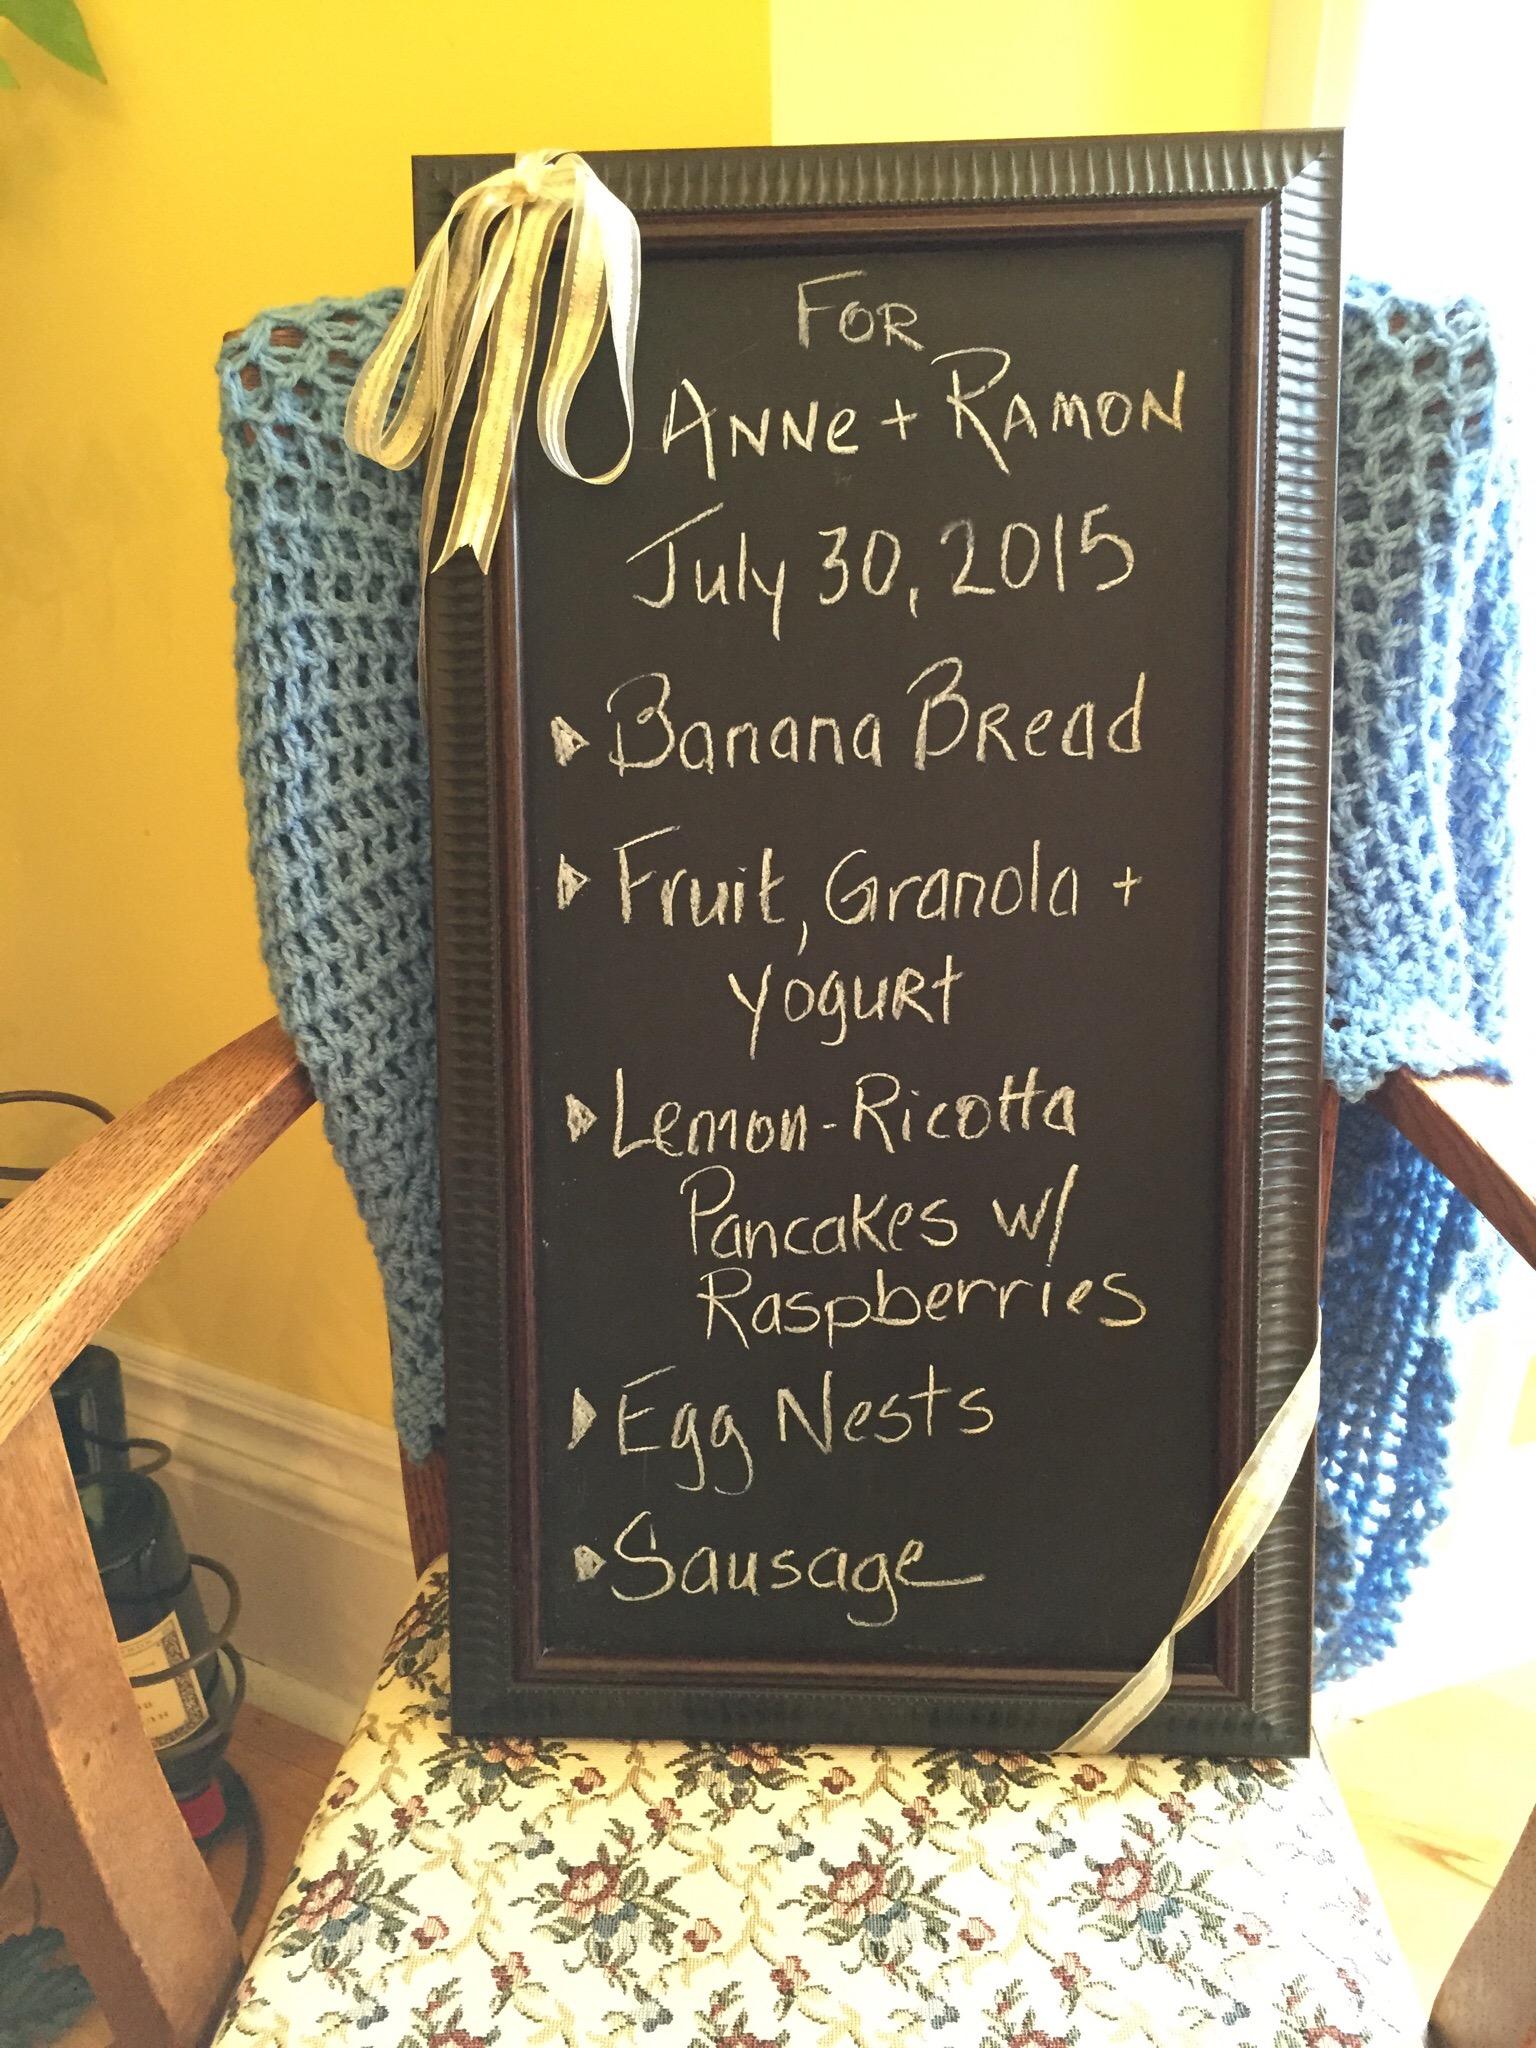 FOR
ANNe + RAMON
July 30, 2015
Banana BRead
Fruit, Granola +
yogurt
Lemon-Ricotta
Pancakes w/
Raspberries
Egg Nests
Sausage